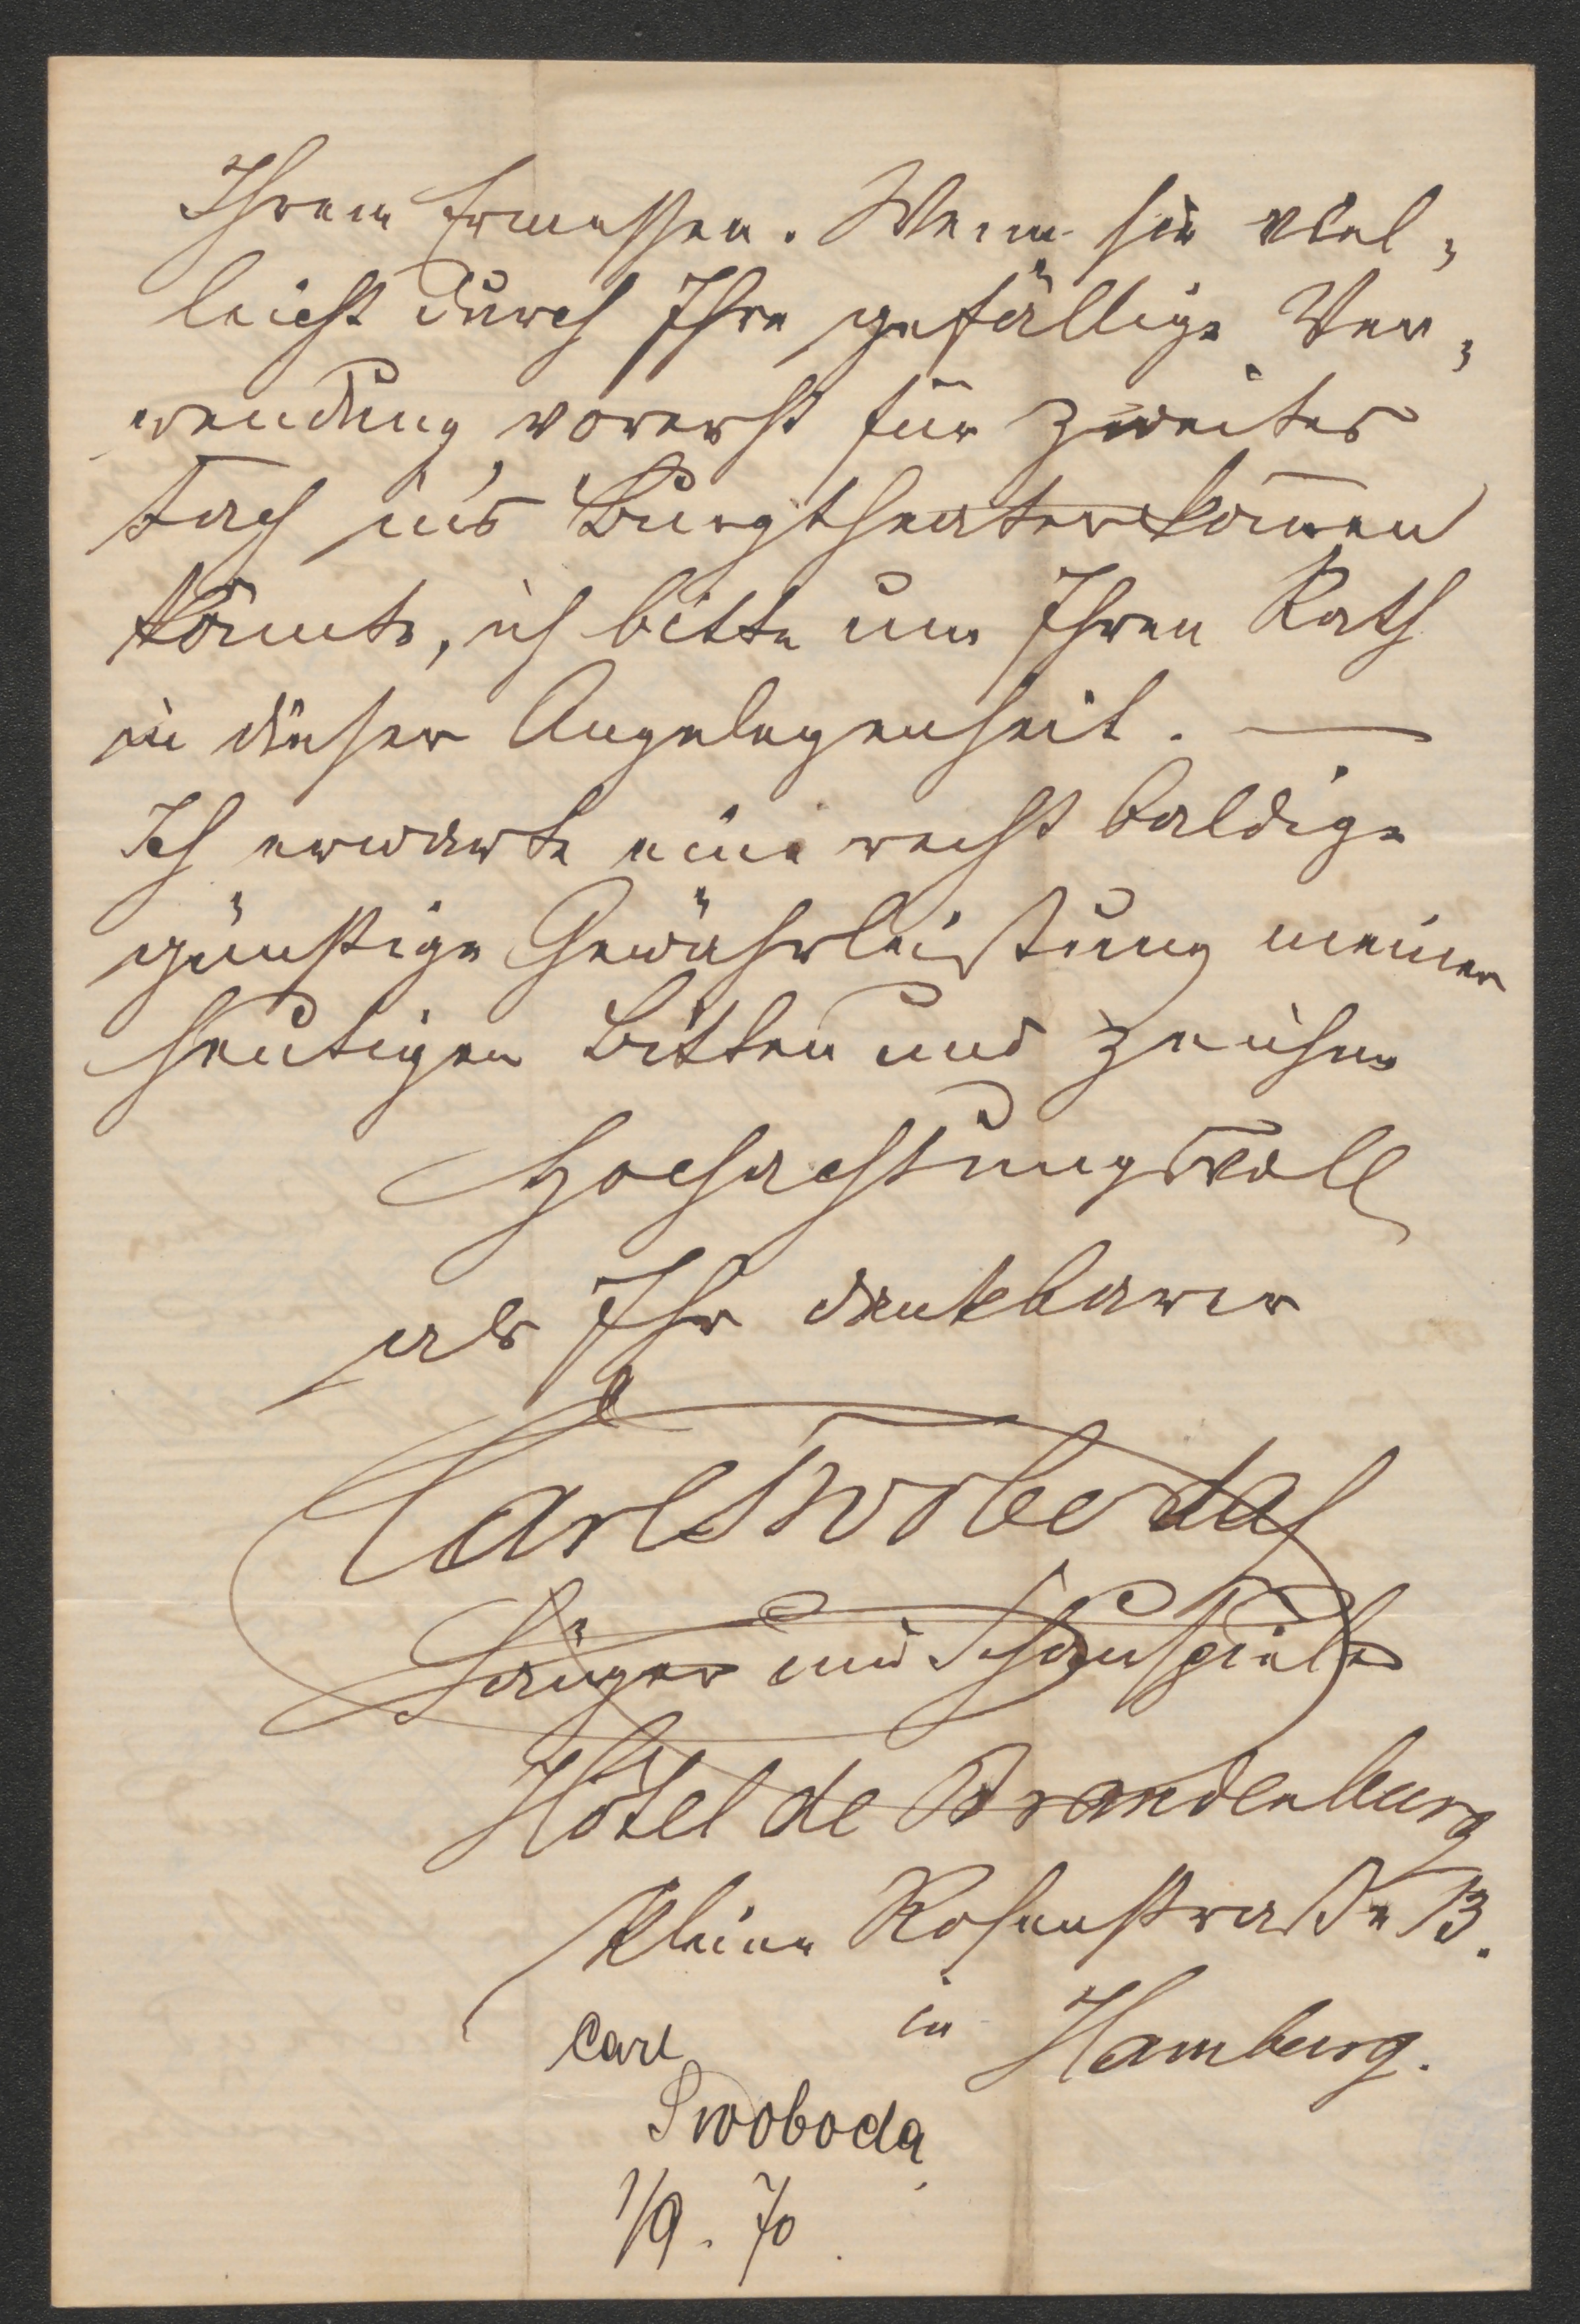 Ihrem Ermessen. Wenn sie viel,
leicht durch Ihre gefällige Ver,
wendung, vorerst für zweites
Fach in's Burgtheater kom̅en
könnte, ich bitte um Ihren Rath
in dieser Angelegenheit. —
Ich erwarte eine recht baldige
günstige Gewährleistung meiner
heutigen Bitten und zeichne
Hochachtungsvoll
als Ihr dankbarer
Carl Swoboda
Sänger und Schauspieler
Hôtel de Brandenburg
Kleine Rosenstraße 13.
in Hamburg.
Carl
Swoboda
1/9. 70.